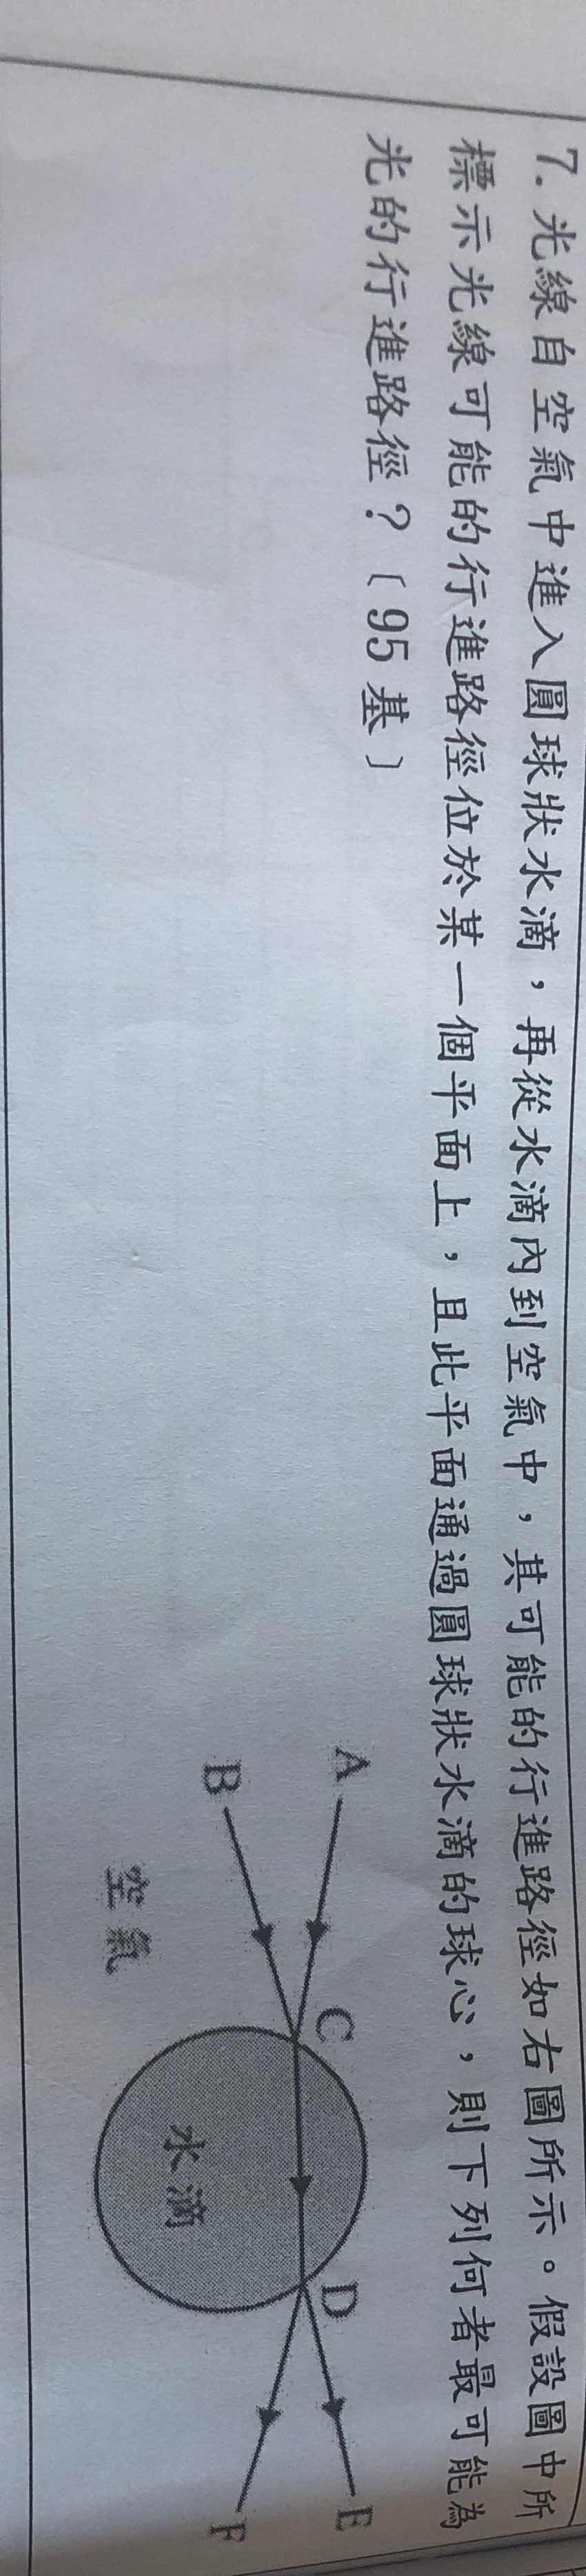 7. 光線自空氣中進入圓球狀水滴，再從水滴內到空氣中，其可能的行進路徑如右圖所示。假設圖中所
標示光線可能的行進路徑位於某一個平面上，且此平面通過圓球狀水滴的球心，則下列何者最可能為
光的行進路徑？〔95基〕
A
B
C
D
E
F
水滴
空氣